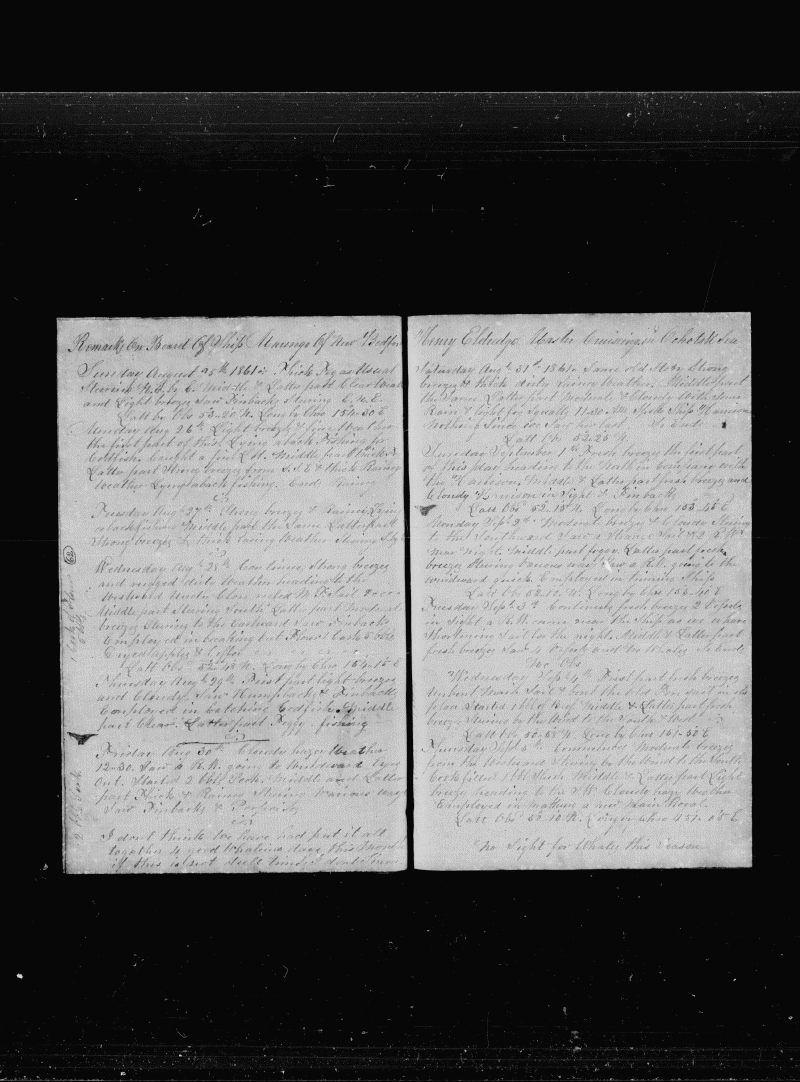 Remarks On Board Of Ship Marengo Of New Bedford
Sunday August 25th 1861 Thick Fog as Usual
Steering N.E. by E. Middle & Latter part Clear Weather
and Light breeze Saw Finbacks Steering E.N.E.
Latt by Obs 53-20 N. Long by Chro 154-30 E
Monday Aug 26th Light breeze & fine Weather
the first part of this Lying aback Fishing for
Codfish. Caught a fine Lot. Middle part thick &
Latter part Strong breeze from S.S.E & thick Rainy
Weather Lying aback fishing. End Rainy
Tuesday Aug 27th Strong breeze & Rainy Lying
aback fishing Middle part the Same Latter part
Strong breeze & thick Rainy Weather Steering
Wednesday Aug 28th Continues Strong breezes
and rugged dirty Weather heading to the
Westward Under Close reefed M. T. Sail
Middle part Steering South Latter part Moderate
breeze Steering to the Eastward Saw Finbacks
Employed in breaking out Flour 1 Cask 5 bbls
Dryed apples & Coffee
Latt Obs 52-48 N. Long by Chro 154-15 E
Thursday Aug 29th First part light breezes
and Cloudy. Saw Humpbacks & Finbacks
Employed in Catching Codfish. Middle
part Clear. Latter part Foggy fishing
Friday Aug 30th Cloudy hazy Weather
12-30. Saw a R.W. going to Windward
Out. Started 2 bbls Pork. Middle and Latter
part Thick & Rainy Steering Various ways
Saw Finbacks & Porpoises
I dont think We have had put it all
together 4 good Whaling days this Month
if this is not dull times I dont know
62
2 bbls Pork
Henry Eldredge Master Cruising in Ochotsk Sea
Saturday Aug 31st 1861. Same old Story Strong
breezes & thick dirty Rainy Weather. Middle part
the Same Latter part Moderate & Cloudy With Some
Rain & light fog Squalls 11-30 AM Spoke Ship Harrison
Nothing Since We Saw her last. So Ends
Latt Obs 52-25 N.
Sunday September 1st Fresh breeze the first part
of this day heading to the North in Company with
the Harrison, Middle & Latter part fresh breezes and
Cloudy Harrison in Sight & Finbacks
Latt Obs 52-13 N. Long by Chro 153-45 E
Monday Sept 2nd Moderate breeze & Cloudy Steering
to the Southward Saw a Strange Sail
near night. Middle part foggy. Latter part fresh
breeze Steering Various ways Saw a R.W. going to the
windward quick. Employed in trimming Ship
Latt Obs 52-10 N. Long by Chro 153-40 E
Tuesday Sept 3rd Continues fresh breezes 2 Vessels
in Sight a R.W. came near the Ship as we where
Shortening Sail for the night. Middle & Latter part
fresh breezes Saw 4 Vessels and No Whales So Ends
No Obs
Wednesday Sept 4th First part fresh breezes
Unbent Main Sail & bent the Old One
place Started 1 bbl of Beef Middle & Latter part fresh
breeze Steering by the Wind to the South & West
Latt Obs 50-55 N. Long by Chro 151-50 E
Thursday Sept 5th Commences Moderate breezes
from the Westward Steering by the Wind to the South
Middle & Latter part Light
breeze heading to the N.W. Cloudy hazy Weather
Employed in making a new Main Royal.
Latt Obs 50-10 N. Long by Chro 151-05 E
No Sight for Whales this Season